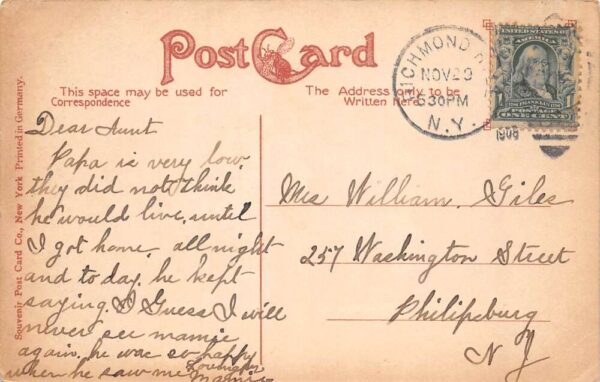 Post Card
This space may be used for
Correspondence
The Address only to be
Written Here
RICHMOND H
NOV 29
530PM
N.Y.
1908
UNITED STATES OF
AMERICA
FRANKLIN
POSTAGE
ONE CENT
1
1
Souvenir Post Card Co., New York Printed in Germany.
Dear Aunt
Papa is very low.
they did not think
he would live, until
I got home. all night
and to day. he kept
saying. I Guess I will
never see mamie
again. he was so happy
when he saw me
Mamie
Mrs William. Giles
257 Washington Street
Philipsburg
N J